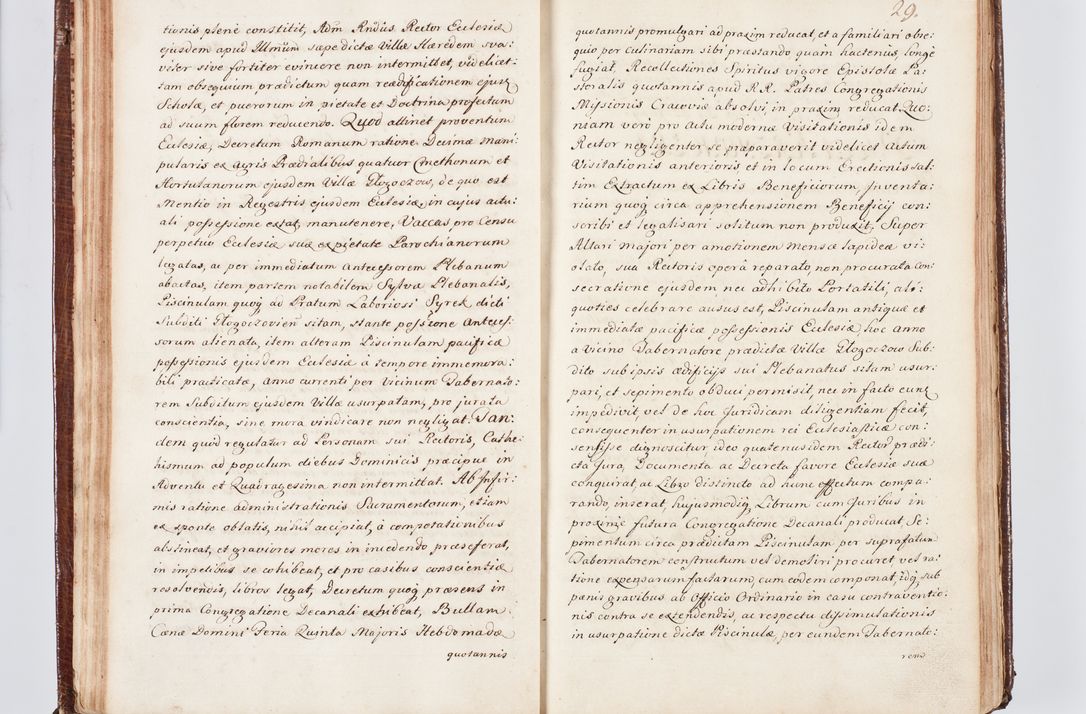 tionis plenè constitit, Adm Rndus Rector Ecclesiæ
ejusdem apud Illmum sæpe dictæ Villæ Hæredem sva:
viter sive fortiter evincere non intermittet, videlicet:
tam obsequium prædictum quam reædificationem ejusq
Scholæ, et puerorum in pietate et Doctrina profectum
ad suum florem reducendo. Quod attinet proventum
Ecclesiæ, Decretum Romanum ratione Decimæ mani:
pularis ex Agris Prædialibus quatuor Cmethonum et
Hortulanorum ejusdem Villæ Głogoczow, de quo est
Mentio in Regestris ejusdem Ecclesiæ, in cujus actu:
ali possessione extat, manutenere, Vaccas pro Censu
perpetuo Ecclesiæ suæ ex pietate Parochianorum
legatas, ac per immediatum Antecessorem Plebanum
abactas, item partem notabilem Sylvæ Plebanalis,
Piscinulam quoq ad Pratum Laboriosi Syrek, dicti
Subditi Głogoczovien sitam, stante possione Anteces:
sorum alienata, item alteram Piscinulam pacificæ
possessionis ejusdem Ecclesiæ à tempore immemora:
bili practicatæ, Anno currenti per Vicinum Tabernato:
rem Subditum ejusdem Villæ usurpatam, pro jurata
conscientia, sine mora vindicare non negligat. Tan:
dem quod regulatur ad Personam sui Rectoris, Cathe:
hismum ad populum diebus Dominicis præcipue in
Adventu et Quadragesima non intermittat. Ab Infir:
mis ratione administrationis Sacramentorum, etiam
ex sponte oblatis, nihil accipiat, à compotationibus
abstineat, et graviores mores in incedendo præseferat,
in impetibus se cohibeat, et pro casibus conscientiæ
resolvendis, libros legat, Decretum quoq præsens in
prima Congregatione Decanali exhibeat, Bullam
Cænæ Domini Feria Quinta Majoris Hebdomadæ
quotannis
29.
quotannis promulgari ad praxim reducat, et a familiari obse:
quio per Culinariam sibi præstando quam hactenus, longè
fugiat, Recollectiones Spiritus vigore Epistolæ Pa:
storalis quotannis apud R.R. Patres Congregationis
Missionis Cracoviæ absolvi, in praxim reducat. Quo:
niam verò pro Actu modernæ Visitationis idem
Rector negligenter se præparaverit videlicet Actum
Visitationis anterioris et in locum Erectionis sal:
tim Extractum ex Libris Beneficiorum, Inventa:
rium quoq circa apprehensionem Beneficij con:
scribi et legalisari solitum non produxit, Super
Altari majori per amotionem mensæ lapideæ vi:
olato, sua Rectoris operâ reparato, non procurata Con:
secratione ejusdem nec adhibito Portatili, ali:
quoties celebrare ausus est, Piscinulam antiquæ et
immediatæ pacificæ possessionis Ecclesiæ hoc Anno
a vicino Tabernatore prædictæ Villæ Głogoczow Sub:
dito sub ipsis ædificijs sui Plebanatus sitam usur:
pari, et sepimento obduci permisit, nec in facto eunq
impedivit, vel de hoc Juridicam diligentiam fecit,
consequenter in usurpationem rei Ecclesiasticæ con:
sensisse dignoscitur, ideo quatenus idem Rector prædi:
cta Jura, Documenta ac Decreta favore Ecclesiæ suæ
conquirat, ac Libro distincto ad hunc effectum compa:
rando, inserat, hujusmodiq Librum cum Juribus in
proxime futura Congregatione Decanali producat, Se:
pimentum circa prædictam Piscinulam per suprafatum
Tabernatorem constructum vel demoliri procuret vel ra:
tione expensarum factarum, cum eodem componat, idq sub
pænis gravibus ab Officio Ordinario in casu contraventio:
nis contra se extendendis, ac respectu dissimulationis
in usurpatione dictæ Piscinulæ, per eundem Tabernato:
rem